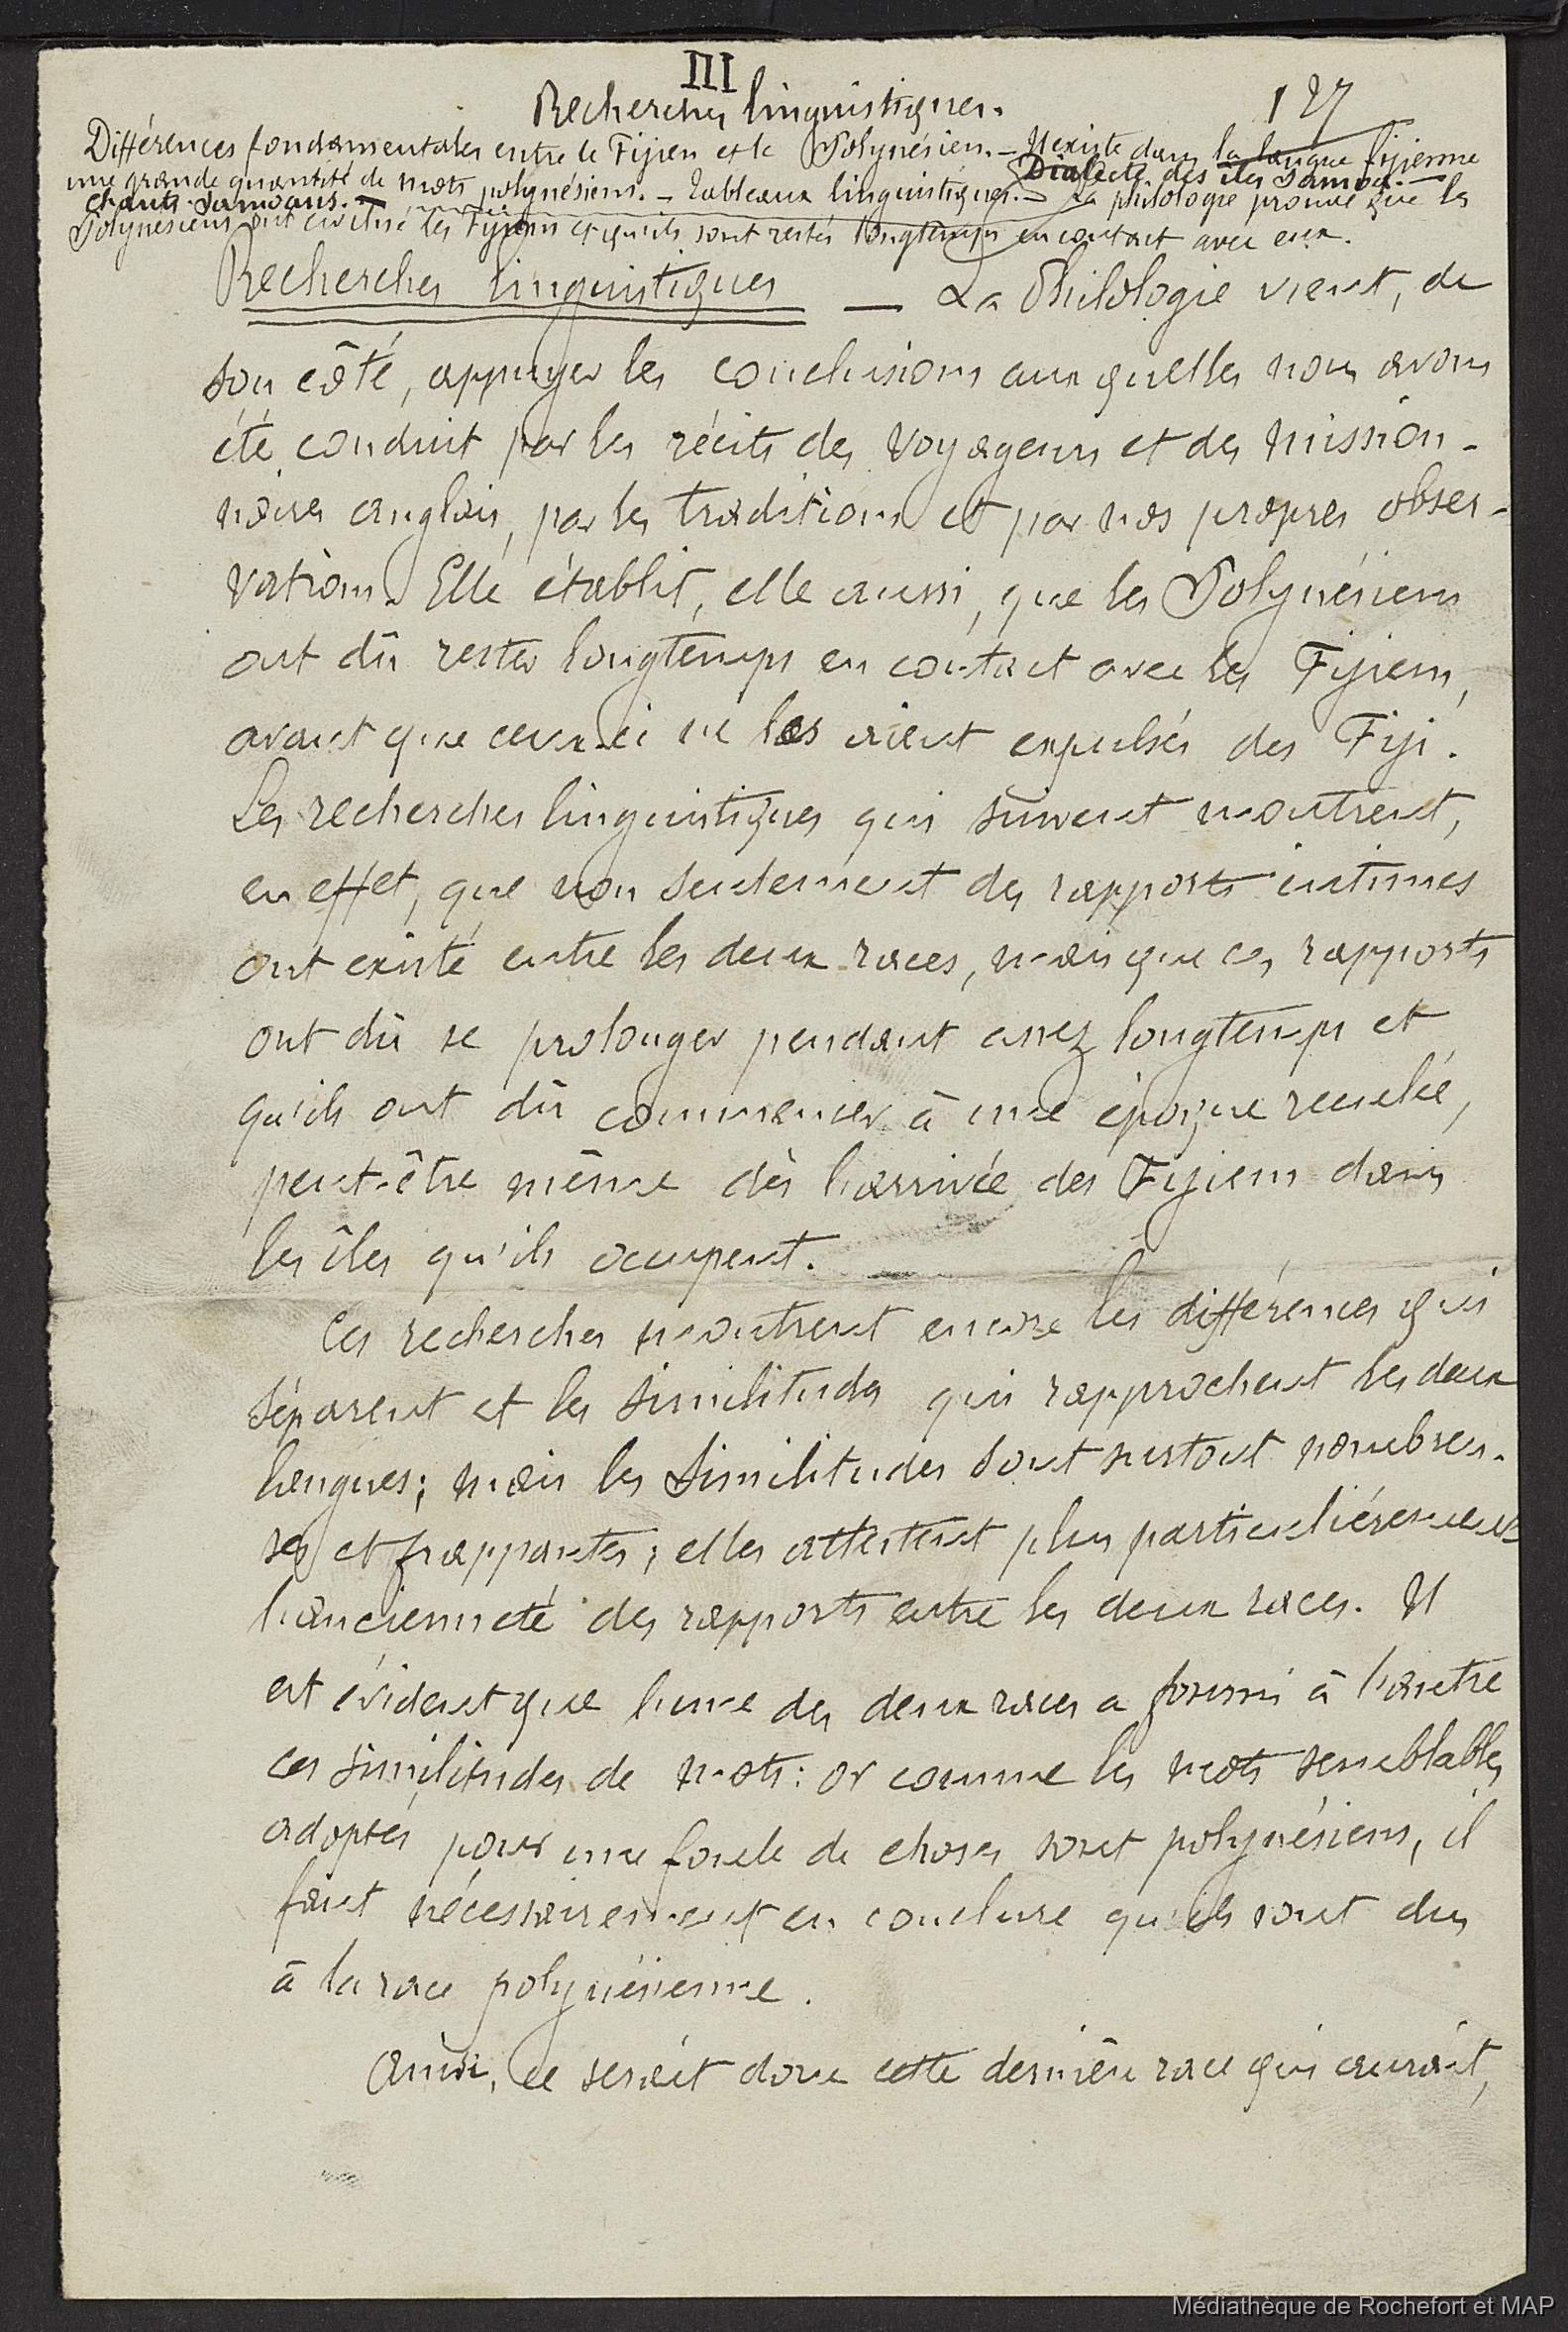 III
Recherches linguistiques.
127
Différences fondamentales entre le Fijien et le Polynésien. – Il existe dans la langue fijienne
une grande quantité de mots polynésiens. – Tableaux linguistiques. – Dialecte des îles Samoa. –
Chants Samoans. – La philologie prouve que les
Polynésiens ont civilisé les Fijiens et qu'ils sont restés longtemps en contact avec eux.
Recherches linguistiques — La Philologie vient, de
son côté, appuyer les conclusions aux quelles nous avons
été conduit par les récits des voyageurs et des mission-
naires anglais, par les traditions et par nos propres obser-
vations. Elle établit, elle aussi, que les Polynésiens
ont dû rester longtemps en contact avec les Fijiens,
avant que ceux-ci ne les aient expulsés des Fiji.
Les recherches linguistiques qui suivent montrent,
en effet, que non seulement des rapports intimes
ont existé entre les deux races, mais que ces rapports
ont dû se prolonger pendant assez longtemps et
qu'ils ont dû commencer à une époque reculée,
peut-être même dès l'arrivée des Fijiens dans
les îles qu'ils occupent.
Ces recherches montrent encore les différences qui
séparent et les similitudes qui rapprochent les deux
langues; mais les similitudes sont surtout nombreu-
ses et frappantes; elles attestent plus particulièrement
l'ancienneté des rapports entre les deux races. Il
est évident que l'une des deux races a fourni à l'autre
ces similitudes de mots: or comme les mots semblables
adoptés pour une foule de choses sont polynésiens, il
faut nécessairement en conclure qu'ils sont dus
à la race polynésienne.
Ainsi, ce serait donc cette dernière race qui aurait,
Médiathèque de Rochefort et MAP